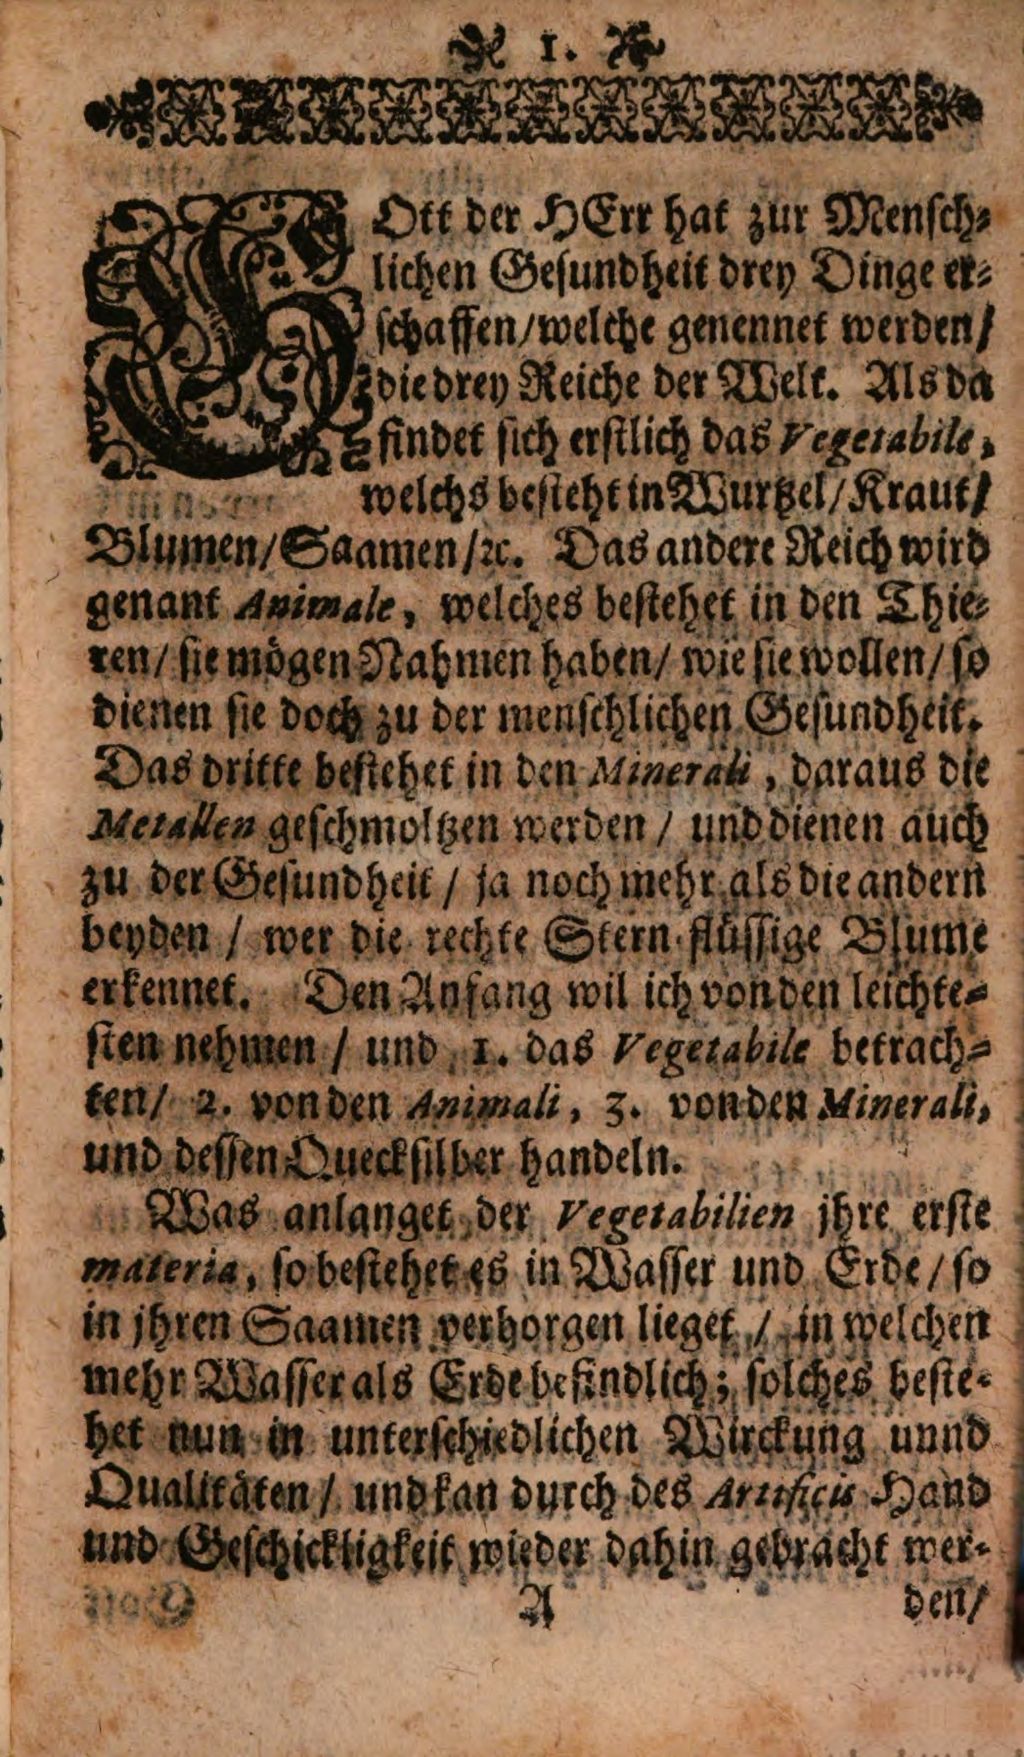 1.
GOtt der HErr hat zur Mensch-
lichen Gesundheit drey Dinge er-
schaffen/welche genennet werden/
die drey Reiche der Welt. Als da
findet sich erstlich das Vegetabile,
welchs besteht in Wurtzel/Kraut/
Blumen/Saamen/ꝛc. Das andere Reich wird
genant Animale, welches bestehet in den Thie-
ren/ sie mögen Nahmen haben/ wie sie wollen/ so
dienen sie doch zu der menschlichen Gesundheit.
Das dritte bestehet in den Minerali, daraus die
Metallen geschmoltzen werden / und dienen auch
zu der Gesundheit / ja noch mehr als die andern
beyden / wer die rechte Stern-flüssige Blume
erkennet. Den Anfang wil ich von den leichte-
sten nehmen / und 1. das Vegetabile betrach-
ten/ 2. von den Animali, 3. von den Minerali,
und dessen Quecksilber handeln.
Was anlanget der Vegetabilien jhre erste
materia, so bestehet es in Wasser und Erde/so
in jhren Saamen verborgen lieget / in welchen
mehr Wasser als Erde befindlich; solches beste-
het nun in unterschiedlichen Wirckung unnd
Qualitäten / und kan durch des Artificis Hand
und Geschickligkeit wieder dahin gebracht wer-
A den/